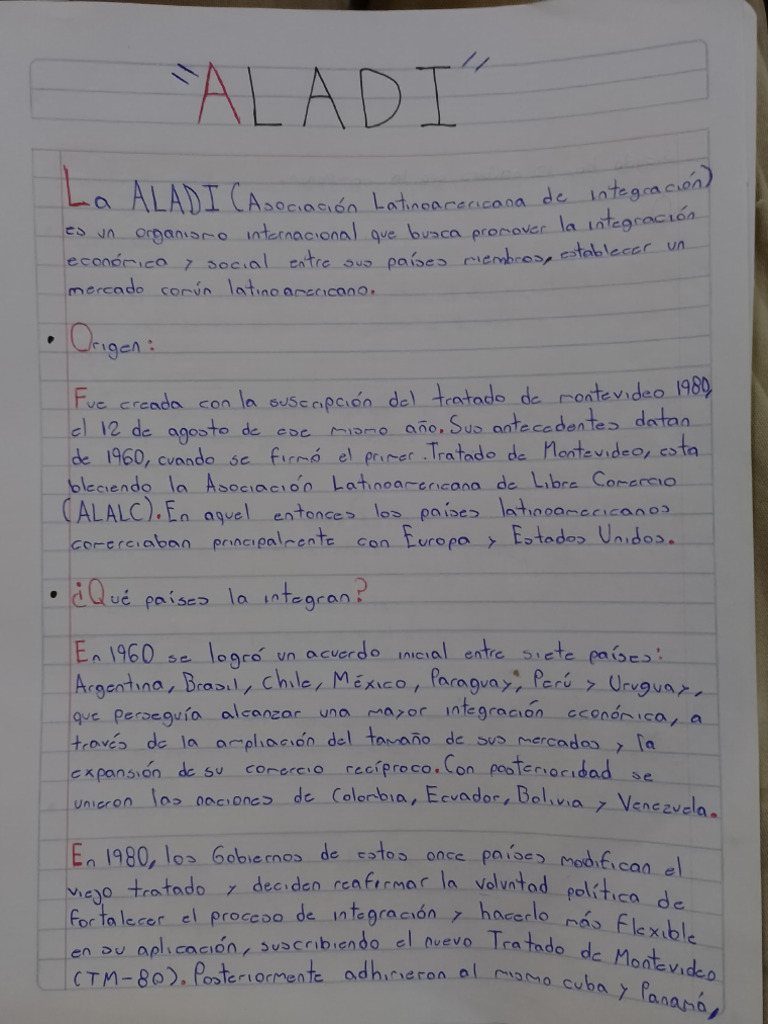 "ALADI"
La ALADI (Asociación Latinoamericana de integración)
es un organismo internacional que busca promover la integración
económica y social entre sus países miembros, establecer un
mercado común latinoamericano.
• Origen:
Fue creada con la suscripción del tratado de montevideo 1980,
el 12 de agosto de ese mismo año. Sus antecedentes datan
de 1960, cuando se firmó el primer Tratado de Montevideo, esta
bleciendo la Asociación Latinoamericana de Libre Comercio
(ALALC). En aquel entonces los países latinoamericanos
comerciaban principalmente con Europa y Estados Unidos.
• ¿Qué países la integran?
En 1960 se logró un acuerdo inicial entre siete países:
Argentina, Brasil, Chile, México, Paraguay, Perú y Uruguay,
que perseguía alcanzar una mayor integración económica, a
través de la ampliación del tamaño de sus mercados y la
expansión de su comercio recíproco. Con posterioridad se
unieron las naciones de Colombia, Ecuador, Bolivia y Venezuela.
En 1980, los Gobiernos de estos once países modifican el
viejo tratado y deciden reafirmar la voluntad política de
fortalecer el proceso de integración y hacerlo más flexible
en su aplicación, suscribiendo el nuevo Tratado de Montevideo
(TM-80). Posteriormente adhirieron al mismo cuba y Panamá,